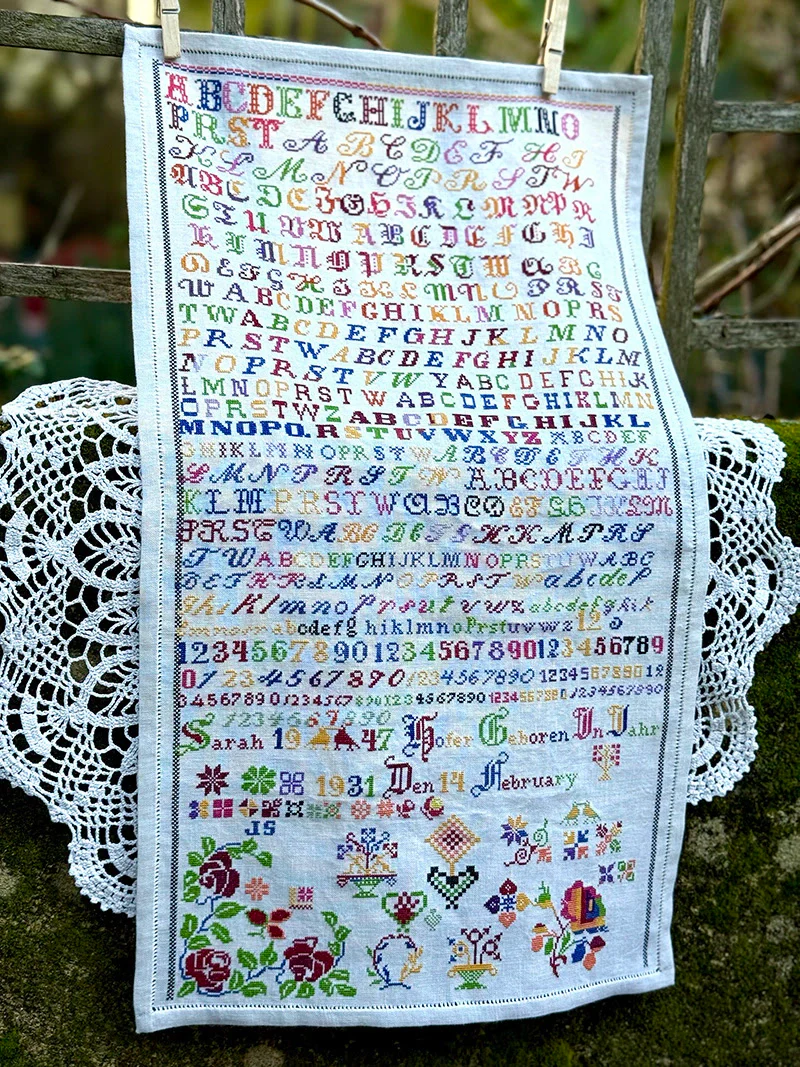 ABCDEFGHIJKLMNO
PRST ABCDEF HI
KLMNOPRSTW
ABCDEFGHIKLMNPR
STUVW ABCDEFGHI
KLMNOPRSTW ABC
DEFGHIKLMNOPRST
WABCDEFGHIKLMNOPRS
TWABCDEFGHJKLMNO
PRSTWABCDEFGHIJKLM
NOPRSTVWYABCDEFGHIK
LMNOPRSTWABCDEFGHIKLMN
OPRSTWZABCDEFGHIJKL
MNOPQRSTUVWXYZABCDEF
GHIKLMNOPRSTWABCDEFHK
LMNPRSTWABCDEFGHI
KLMPRSTWABCDEFGHIKLM
PRSTWABCDEFGHKMPRS
TWABCDEFGHIJKLMNOPRSTUWABC
DEFHKLMNOPRSTWabcdef
ghiklmnoprsutvwzabcdefghik
lmnoprstabcdefghiklmnoprstuvwz12
12345678901234567890123456789
01234567890123456789012345678901 2
34567890123456789012345678901234567890
1234567890
Sarah 1947 Hofer Geboren In Jahr
1931 Den 14 February
JS